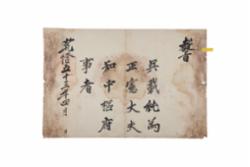 敎旨
吳載純爲
正憲大夫
知中樞府
事者
乾隆五十三年四月 日